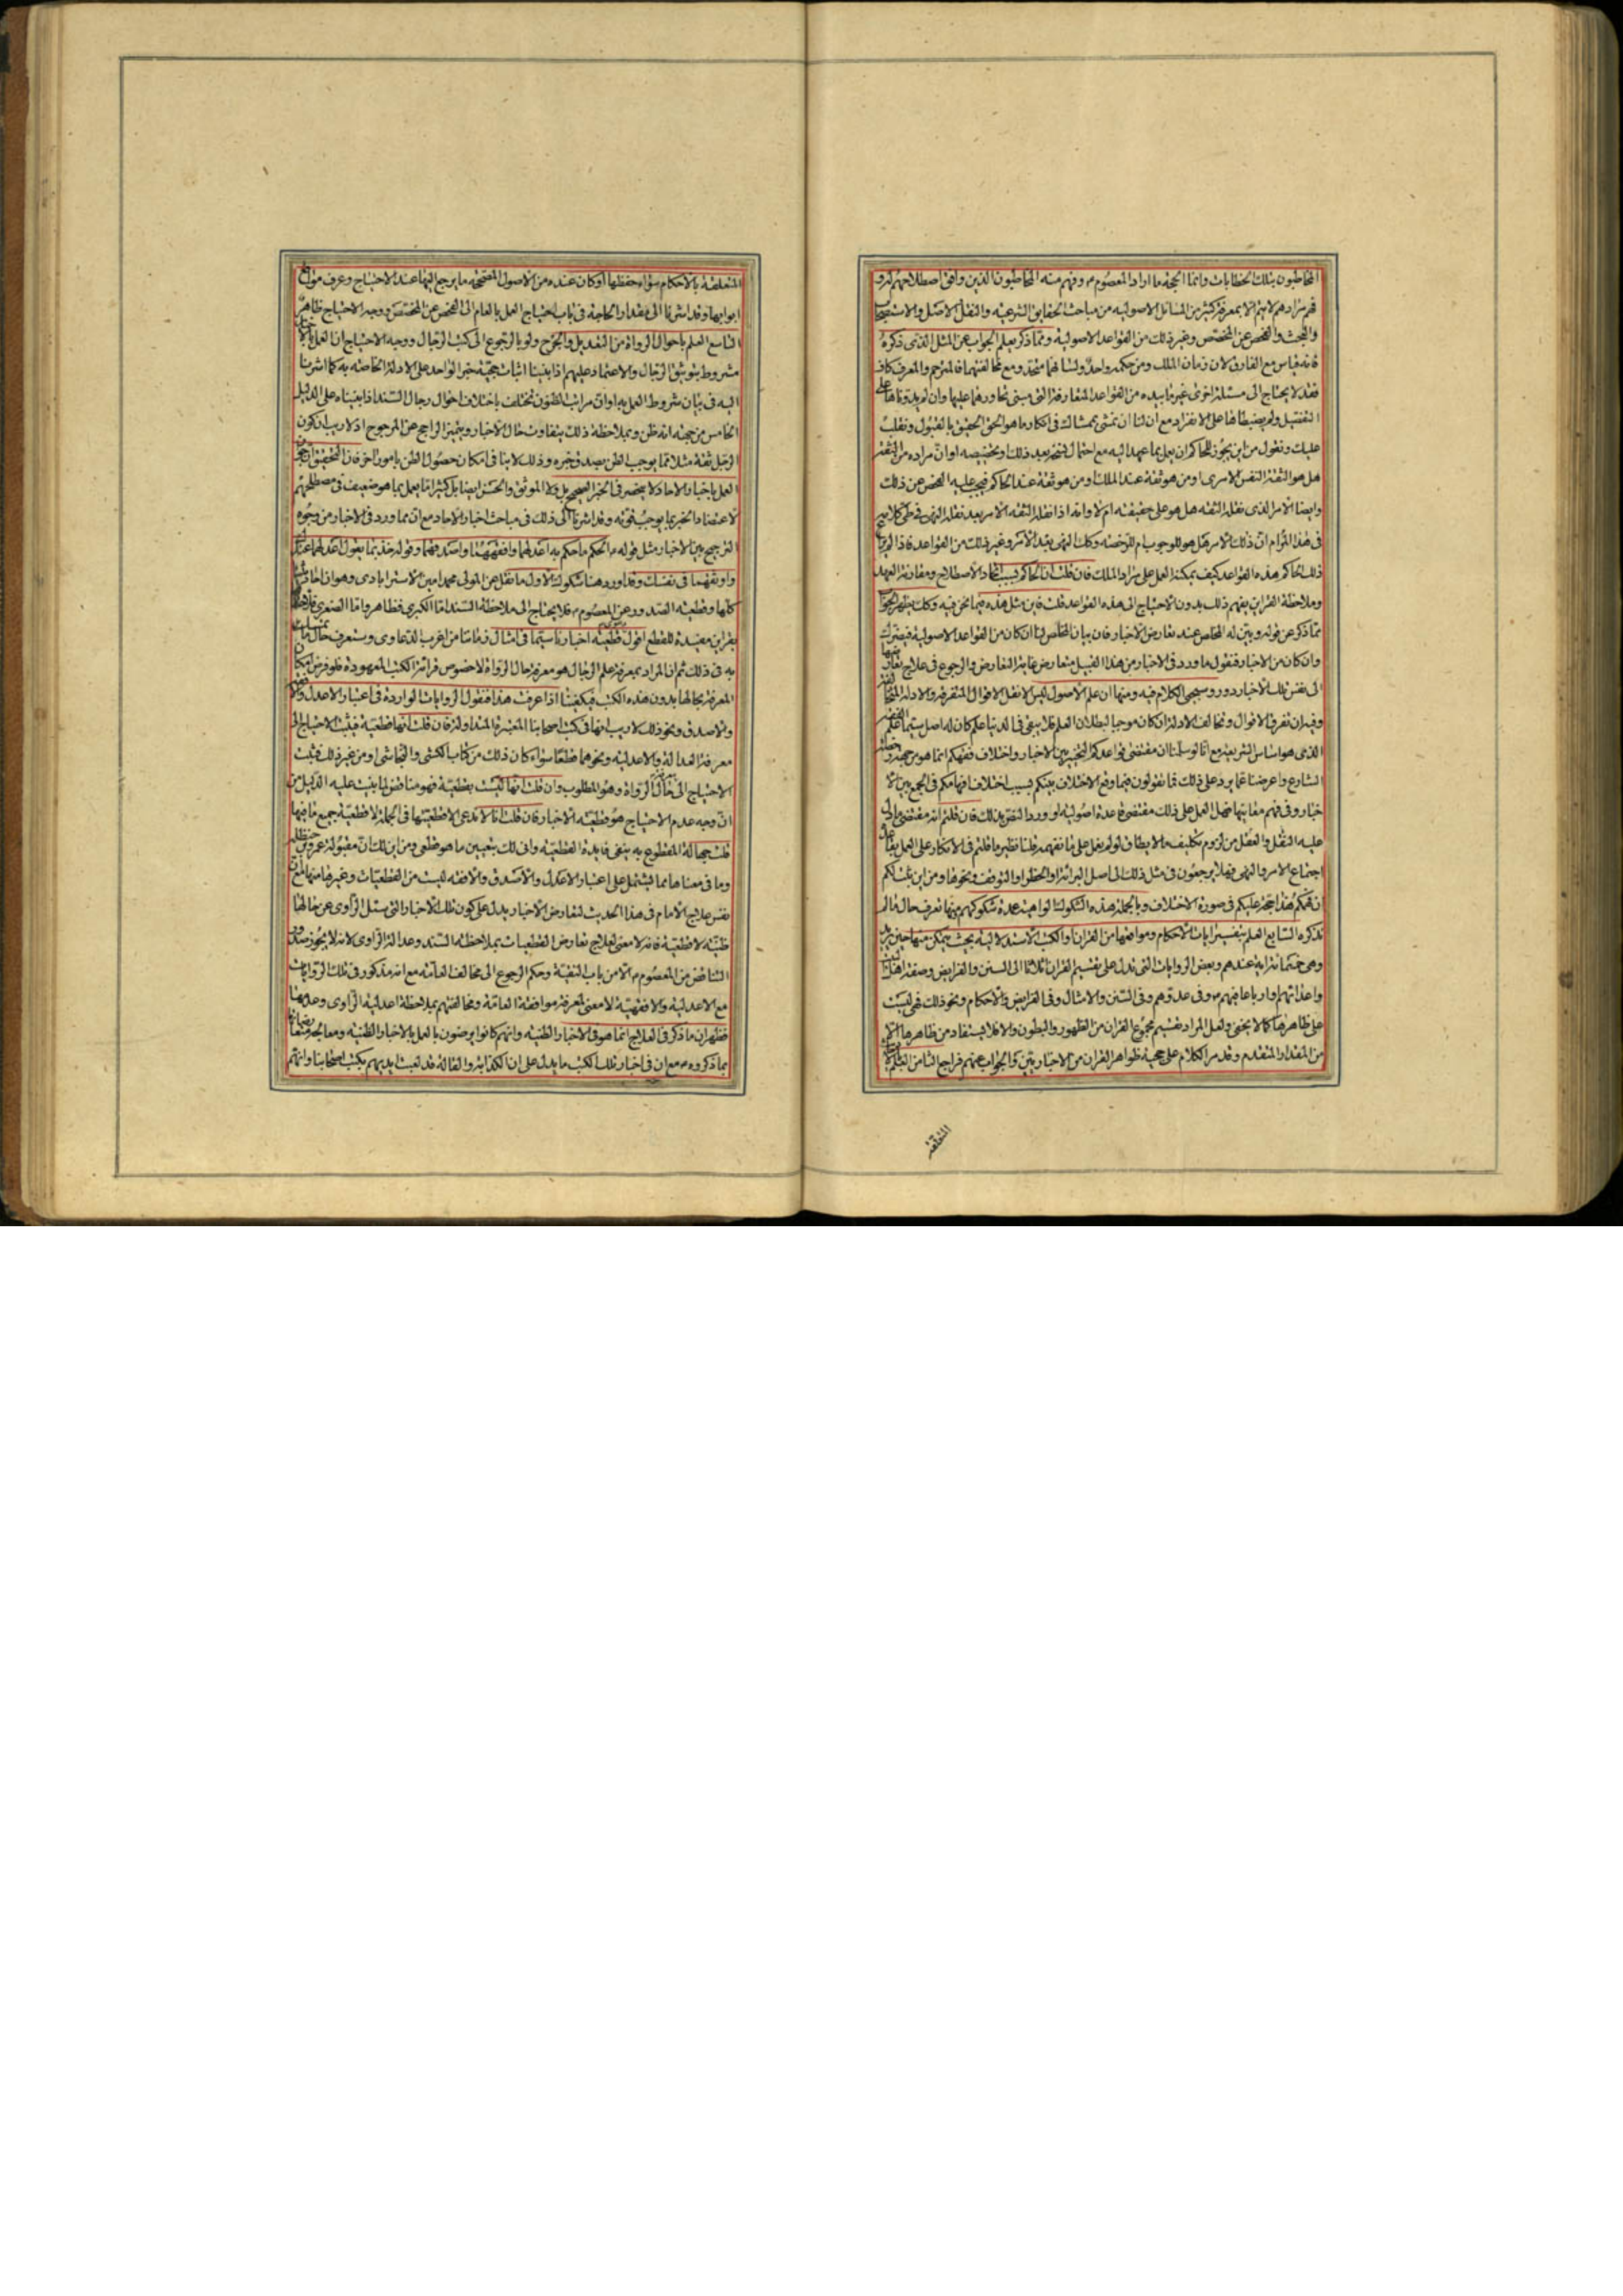 المخاطبون بتلك الخطابات وانما الحجة ما اراد المعصوم م وفهم منه المخاطبون الذين وافق اصطلاحهم
فهم مرادهم لا يتم الا بمعرفة كثير من المسائل الاصولية من مباحث الحقايق الشرعية والنقل الاصل والاستصحاب
والبحث والفحص عن المخصص وغير ذلك من القواعد الاصولية ومما ذكر يعلم الجواب عن المثل الذى ذكره
فانه قياس مع الفارق لان زمان الملك ومن حكمه واحد ولسانهما متحد ومع مخالفتهما فالمترجم والمعرف كاف
فقد لا يحتاج الى مسئلة اخرى غير ما بيده من القواعد المتعارفة التى مبنى تحاورهما عليها وان لم يدونها على
التفصيل ولم يضبطاها على الانفراد مع ان لنا ان نمشى بمثالك فى انكار ما هو الحق الحقيق بالقبول ونقلب
عليك ونقول من اين يجوز للحاكم ان يعمل بما عهد اليه مع احتمال نسخه بعد ذلك وتخصيصه او ان مراده من الثقة
هل هو الثقة النفس الامرى او من هو ثقة عند الملك او من هو ثقة عند الحاكم فيجب عليه الفحص عن ذلك
وايضا الامر الذى نقله الثقة هل هو على حقيقته ام لا وانه اذا نقل الثقة الامر بعد نقله النهى فى طى كلامه
فى هذا المرام ان ذلك الامر هل هو للوجوب ام للرخصة وكك النهى بعد الامر وغير ذلك من القواعد فاذا لم
ذلك الحاكم هذه القواعد كيف يمكنه العمل على مراد الملك فان قلت ان الحاكم بسبب اتحاد الاصطلاح ومقارنة العهد
وملاحظة القراين يفهم ذلك بدون الاحتياج الى هذه القواعد قلت فاين مثل هذه مما نحن فيه وكك يظهر الجواب
مما ذكر عن قوله وبين له المخلص عند تعارض الاخبار فان بيان المخلص لنا ان كان من القواعد الاصولية فيضرك
وان كان من الاخبار فنقول ما ورد فى الاخبار من هذا القبيل متعارض غاية التعارض والرجوع فى علاج تعارضها
الى نفس تلك الاخبار دور وسيجئ الكلام فيه ومنها ان علم الاصول ليس الا نقل الاقوال المتفرقة والادلة المتخالفة
وفيه ان تفرق الاقوال وتخالف الادلة ان كان موجبا لبطلان العلم فلا يبقى فى الدنيا علم كان له اصل سيما علم الفقه
الذى هو اساس الشريعة مع انا لو سلمنا ان مقتضى قواعدكم التخيير بين الاخبار واختلاف فقهكم انما هو من جهة
الشارع واعرضنا عما يرد على ذلك فما تقولون فيما وقع الاختلاف بينكم بسبب اختلاف افهامكم فى الجمع بين الا
خبار وفى فهم معانيها فهل العمل على ذلك مقتضى قاعدة اصولية او ورد النقل بذلك فان قلتم انه مقتضى ما دل
عليه النقل والعقل من لزوم تكليف ما لا يطاق لو لم يعمل على ما نفهمه قلنا نظير ما قلتم فى الانكار على العمل بقاعدة
اجتماع الامر والنهى فهلا يرجعون فى مثل ذلك الى اصل البرائة او الحظر او التوقف ونحوها ومن اين ثبت لكم
ان فهمكم هذا حجة عليكم فى صورة الاختلاف وبالجملة هذه الشكوك الواهية عدة شكوكهم منها تعرف حال ما لم
نذكره السابع العلم بتفسير ايات الاحكام ومواضعها من القران او الكتب الاستدلالية بحيث يتمكن منها حين يريد
وهى خمسمائة اية عندهم وبعض الروايات التى تدل على تقسيم القران اثلاثا الى السنن والفرايض وصفة اهل البيت
واعدائهم او ارباعا فيهم م وفى عدوهم وفى السنن والامثال وفى الفرايض والاحكام ونحو ذلك فهى ليست
على ظاهرها كما لا يخفى ولعل المراد تقسيم مجموع القران من الظهور والبطون والا فلا يستفاد من ظاهرها الا
من المقدار المتقدم وقد مر الكلام على حجية ظواهر القران من الاخباريين والجواب عنهم فراجع الثامن العلم
المتعلقة
المتعلقة بالاحكام سواء حفظها او كان عنده من الاصول المصححة ما يرجع اليها عند الاحتياج وعرف مواقع
ابوابها وقد اشرنا الى مقدار الحاجة فى باب احتياج العمل بالعام الى الفحص عن المخصص ووجه الاحتياج ظاهر
التاسع العلم باحوال الرواة من التعديل والجرح ولو بالرجوع الى كتب الرجال ووجه الاحتياج ان العمل بالاخبار
مشروط بتوثيق الرجال والاعتماد عليهم اذا بنينا اثبات حجية خبر الواحد على الادلة الخاصة به كما اشرنا
اليه فى بيان شروط العمل به او ان مراتب الظنون تختلف باختلاف احوال رجال السند اذا بنيناه على الدليل
الخامس من جهة انه ظن وبملاحظة ذلك يتفاوت حال الاخبار ويتميز الراجح عن المرجوح اذ لا ريب ان كون
الرجل ثقة مثلا مما يوجب الظن بصدق خبره وذلك لا ينافى امكان حصول الظن بامور اخر فان التحقيق ان حجية
العمل باخبار الاحاد لا ينحصر فى الخبر الصحيح بل ولا الموثق والحسن ايضا بل كثيرا ما يعمل بما هو ضعيف فى مصطلحهم
لاعتضاد الخبر بما يوجب قوته وقد اشرنا الى ذلك فى مباحث اخبار الاحاد مع ان مما ورد فى الاخبار من وجوه
الترجيح بين الاخبار مثل قوله م الحكم ما حكم به اعدلهما وافقههما واصدقهما وقوله خذ بما يقول اعدلهما عندك
واوثقهما فى نفسك وقد اورد هنا شكوك الاول ما نقل عن المولى محمد امين الاسترابادى وهو ان احاديثنا
كلها قطعية الصدور عن المعصوم م فلا يحتاج الى ملاحظة السند اما الكبرى فظاهر واما الصغرى فلاحتفافها
بقراين مفيدة للقطع اقول قطعية اخبارنا سيما فى امثال زماننا من اغرب الدعاوى وستعرف حال ما تمسك
به فى ذلك ثم ان المراد بمعرفة علم الرجال هو معرفة حال الرواة لا خصوص قرائة الكتب المعهودة فلو فرض امكان
المعرفة بحالها بدون هذه الكتب فيكفينا اذا عرفت هذا فنقول الروايات الواردة فى اعتبار الاعدل والافقه
والاصدق ونحو ذلك لا ريب انها فى كتب اصحابنا المعتبرة المتداولة فان قلت انها قطعية فيثبت الاحتياج الى
معرفة العدالة والاعدلية ونحوهما قطعا سواء كان ذلك من كتاب الكشى والنجاشى او من غير ذلك فثبت
الاحتياج الى حال الرواة وهو المطلوب وان قلت انها ليست بقطعية فهو مناقض لما بنيت عليه الدليل من
ان وجه عدم الاحتياج هو قطعية الاخبار فان قلت انا لا ندعى الا قطعيتها فى الجملة لا قطعية جميع ما فيها
قلت جهالة المقطوع به ينفى فايدة القطعية وانى لك بتعيين ما هو قطعى ومن اين لك ان مقبولة عمر بن حنظلة
وما فى معناها مما يشتمل على اعتبار الاعدل والاصدق والافقه ليست من القطعيات وغيرها منها مع ان
نفس علاج الامام فى هذا الحديث لتعارض الاخبار يدل على كون تلك الاخبار التى سئل الراوى عن حالها
ظنية لا قطعية فانه لا معنى لعلاج تعارض القطعيات بملاحظة السند وعدالة الراوى لانه لا يجوز صدور
التناقض من المعصوم م الا من باب التقية وحكم الرجوع الى مخالفة العامة مع انه مذكور فى تلك الروايات
مع الاعدلية والافقهية لا معنى لمعرفة موافقة العامة ومخالفتهم بملاحظة اعدلية الراوى وعدمها
فظهر ان ما ذكر فى العلاج انما هو فى الاخبار الظنية وانهم كانوا يرضون بالعمل بالاخبار الظنية ومعالجة متعارضاتها
بما ذكروه م مع ان فى اخبار تلك الكتب ما يدل على ان الكذابة والقالة قد لعبت ايديهم بكتب اصحابنا وانهم